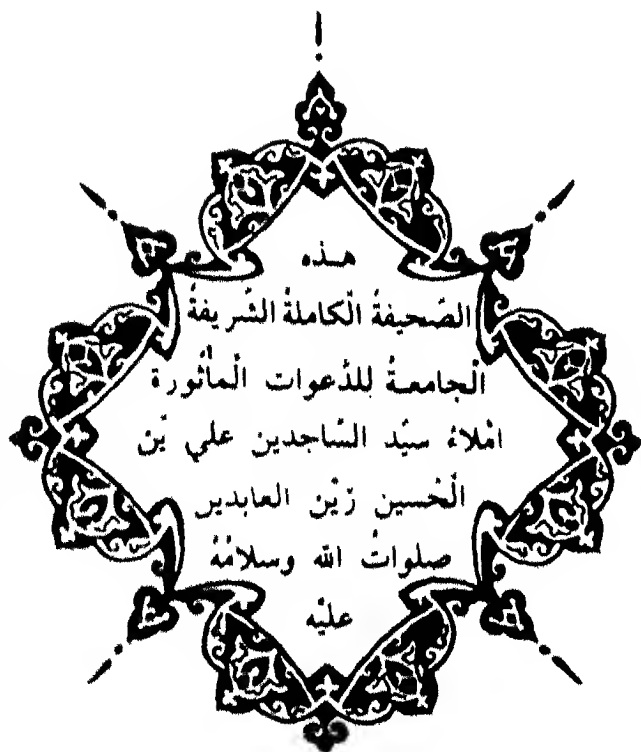 هـذه
الصّحيفةُ الْكاملةُ الشّريفةُ
الْجامعـةُ لِلدَّعوات الْمأثورة
امْلاءُ سيّد السّاجدين علي بْن
الْحُسين زَيْن العابدين
صلواتُ الله وسلامُهُ
عليْه